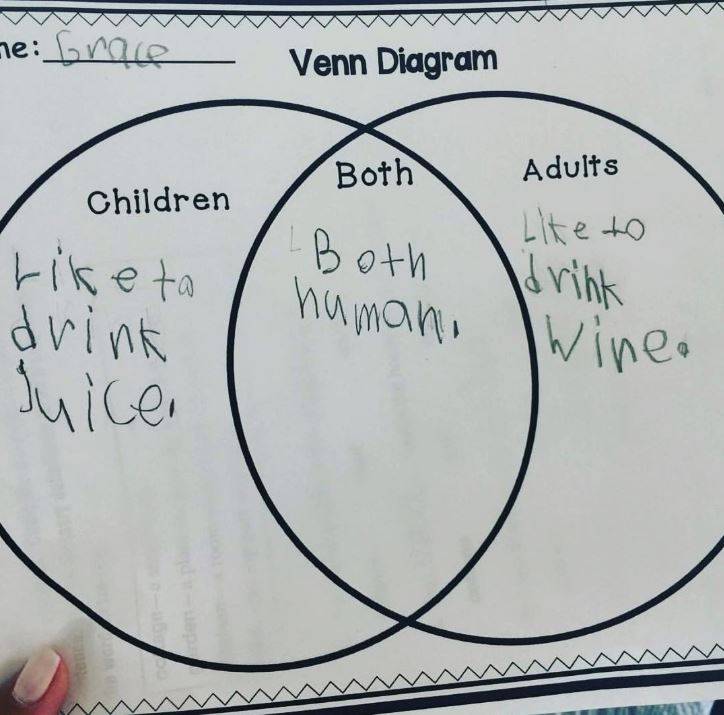 ne: Grace
Venn Diagram
Children
Like to
drink
Juice.
Both
Both
human.
Adults
Like to
drink
Wine.